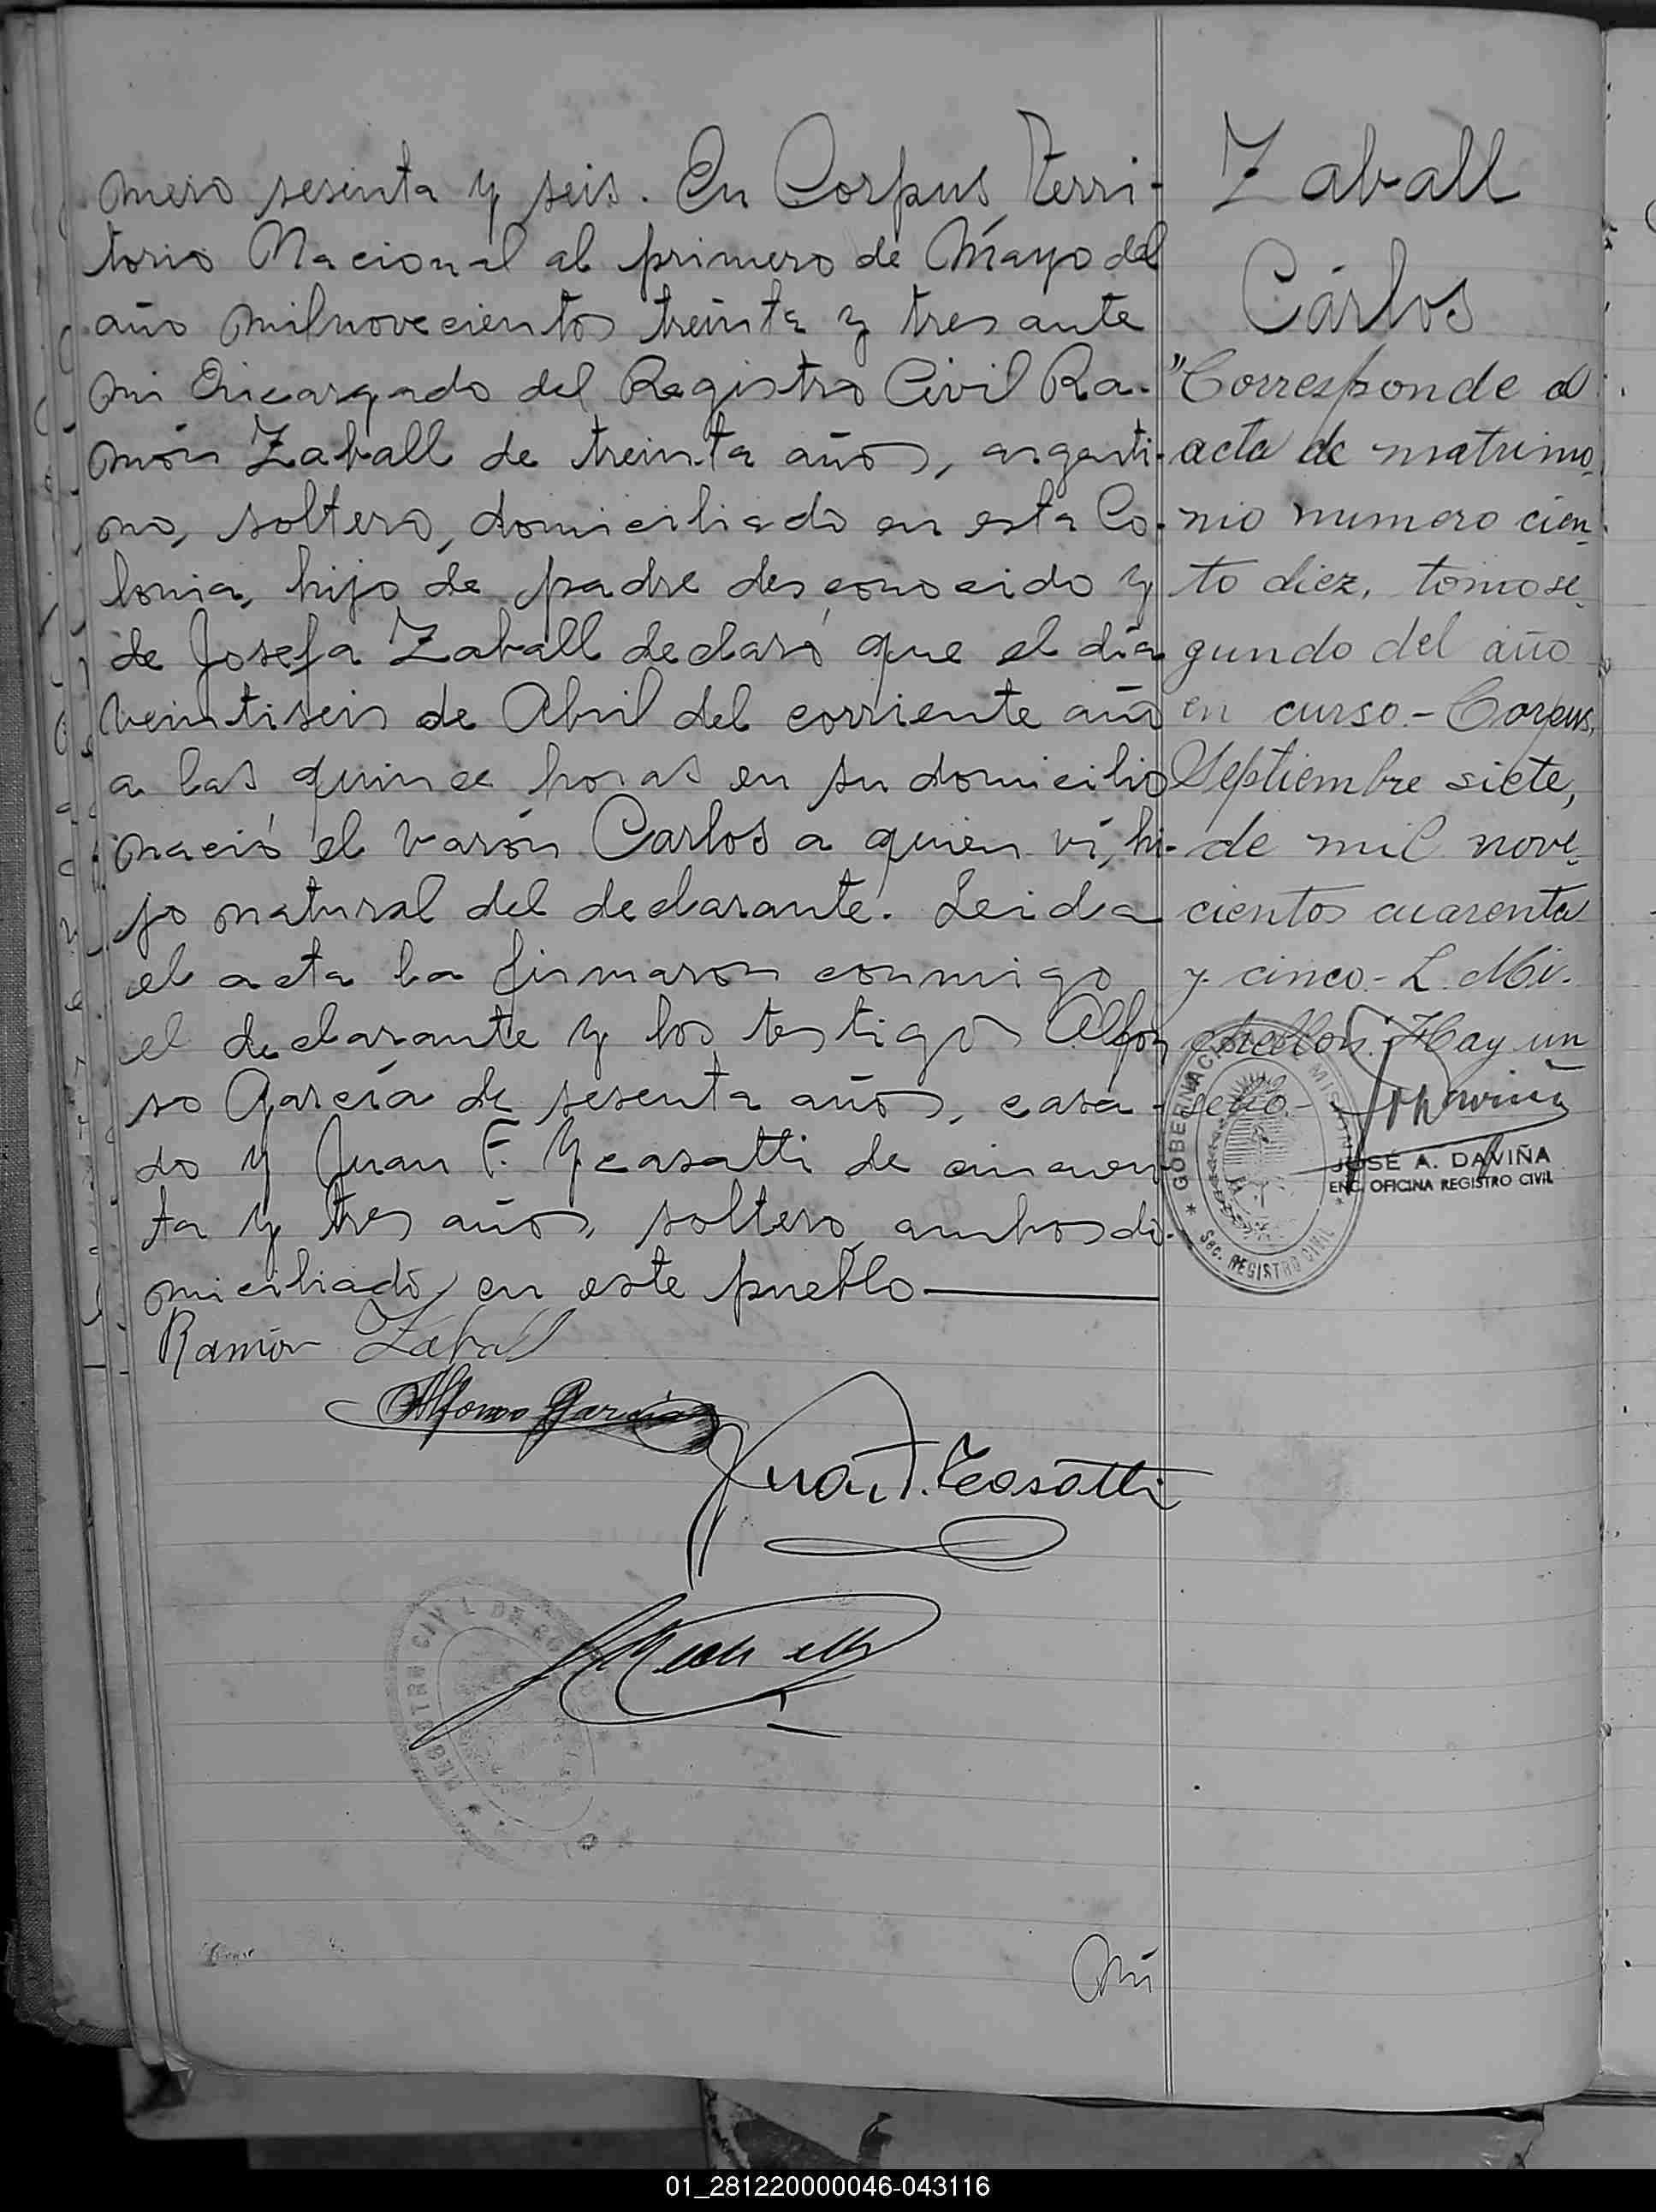 mero sesenta y seis. En Corpus, Terri-
torio Nacional al primero de Mayo del
año milnovecientos treinta y tres ante
mi Encargado del Registro Civil Ra-
món Zaball de treinta años, argenti-
no, soltero, domiciliado en esta Co-
lonia, hijo de padre desconocido y
de Josefa Zaball declaró que el día
veintiseis de Abril del corriente año
a las quince horas en su domicilio
nació el varón Carlos a quien ví, hi-
jo natural del declarante. Leida
el acta la firmaron conmigo
el declarante y los testigos Alfon
so García de sesenta años, casa-
do y Juan F. Ycasatti de cincuen
ta y tres años, soltero, ambos do-
miciliados en este pueblo
Ramón Zaball
Alfonso Garcia
Juan F. Ycasatti
Mi
Zaball
Cárlos
"Corresponde al
acta de matrimo
nio numero cien
to diez, tomo se
gundo del año
en curso.- Corpus,
Septiembre siete,
de mil nove
cientos cuarenta
y cinco.- L. Mi-
chellon. Hay un
sello.-
JOSÉ A. DAVIÑA
ENC. OFICINA REGISTRO CIVIL
GOBERNACION MIS
Sec. REGISTRO CIVIL
REGISTRO CIVIL DE
01_281220000046-043116